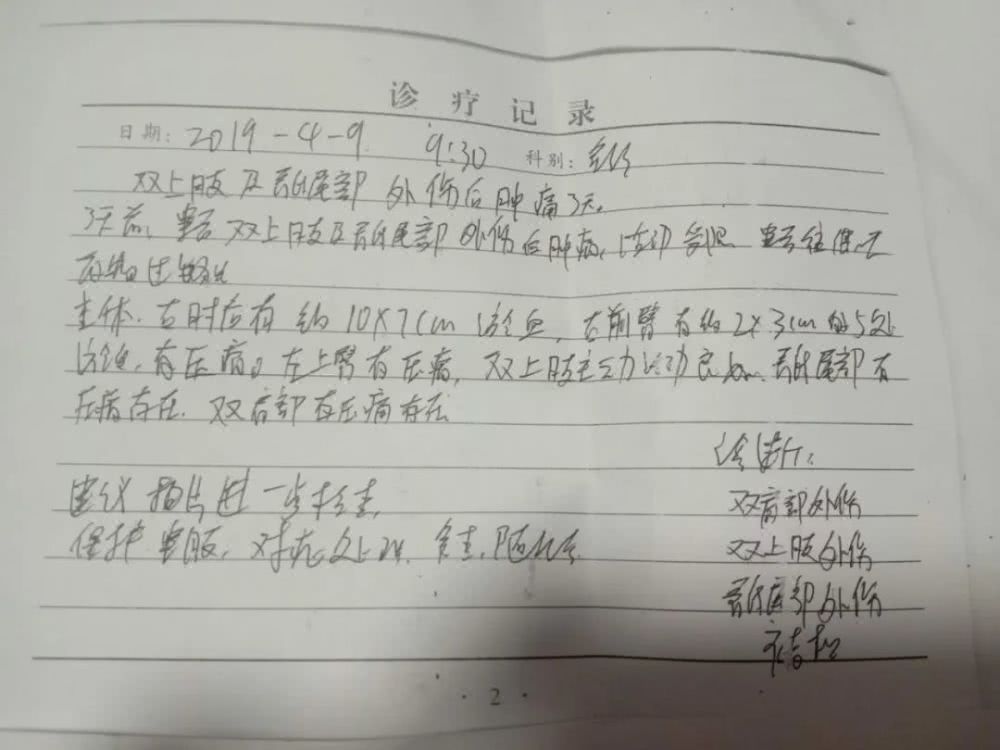 诊疗记录
日期: 2019-4-9 9:30 科别:
双上肢及骶尾部外伤后肿痛3天。
3天前, 患者双上肢及骶尾部外伤后肿痛, 活动受限
查体: 右肘后有约10×7cm淤血, 右前臂有约2×3cm的5处
淤血, 有压痛。左上臂有压痛, 双上肢主动活动良好, 骶尾部有
压痛存在. 双肩部有压痛存在
诊断:
建议拍片进一步检查,
双肩部外伤
保护患肢, 对症处理. 复查. 随诊
双上肢外伤
骶尾部外伤
· 2 ·